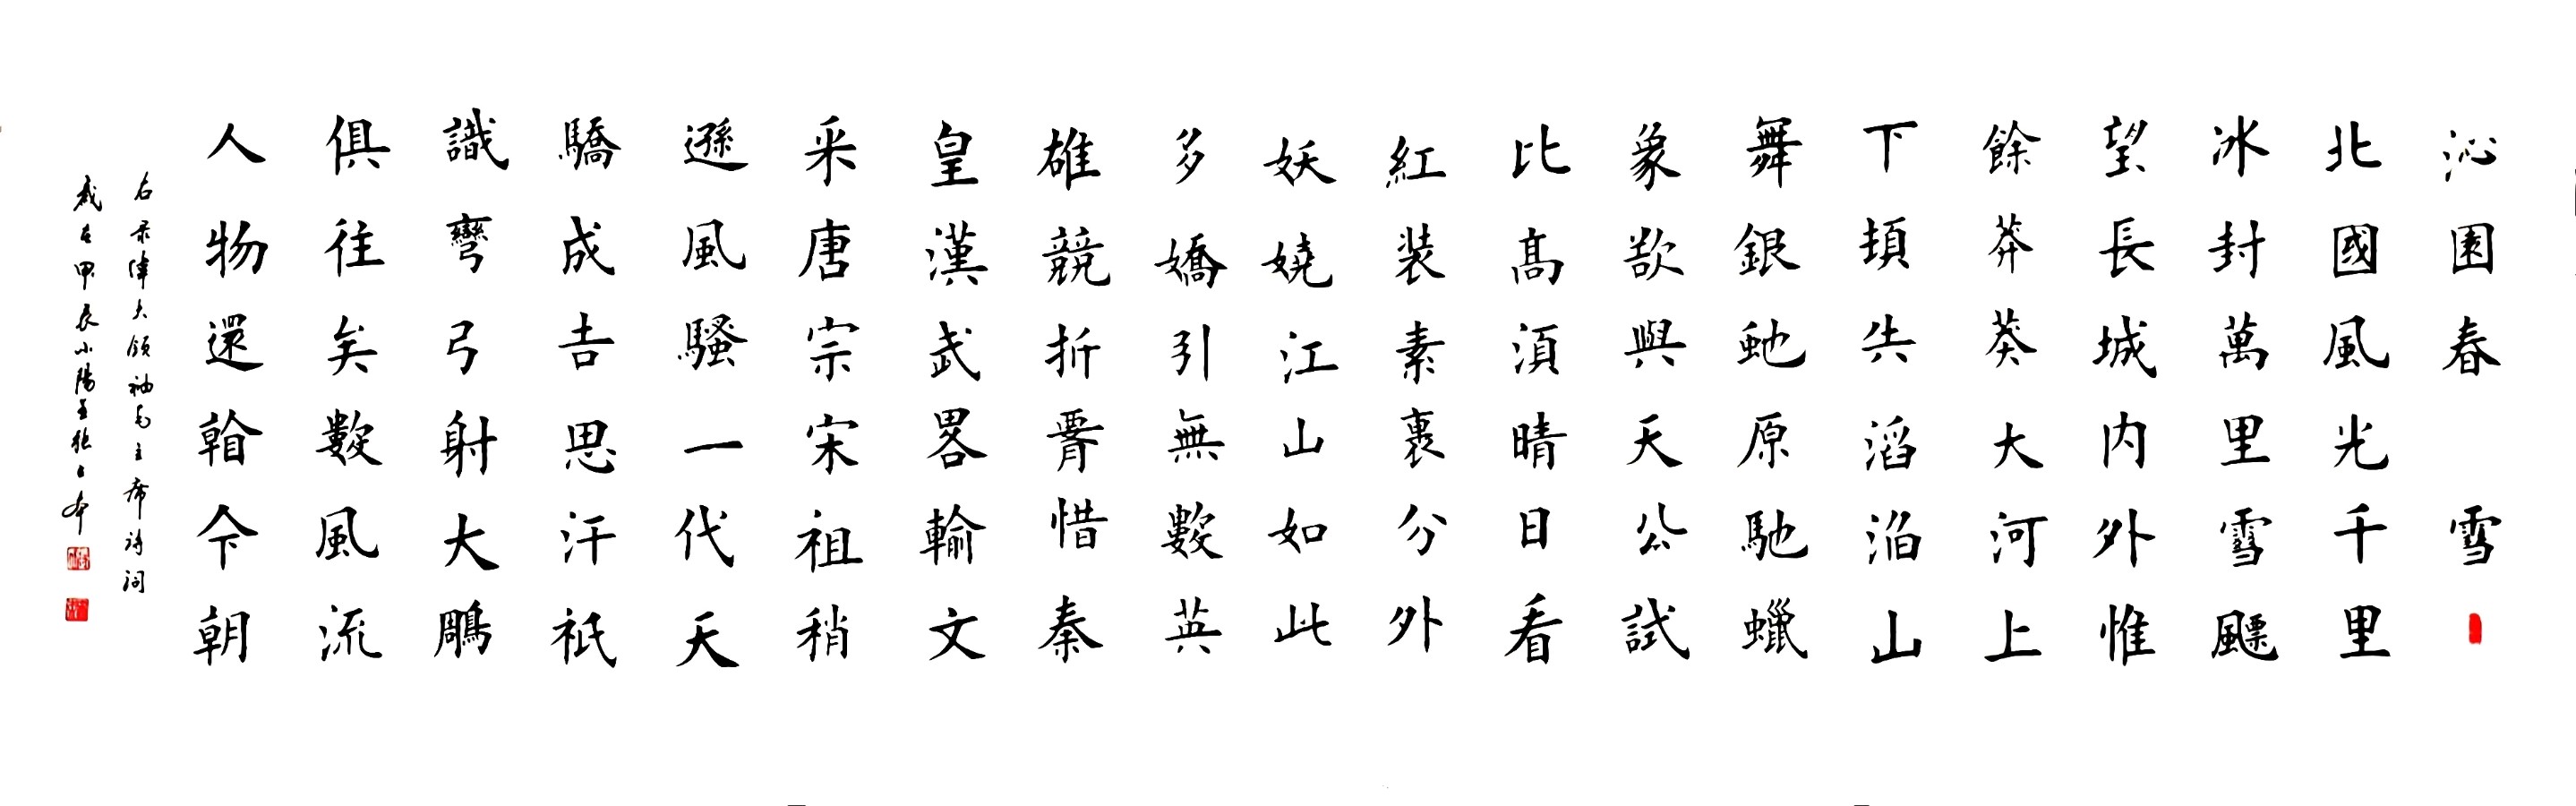 沁園春 雪
北國風光千里
冰封萬里雪飃
望長城内外惟
餘莽莽大河上
下頓失滔滔山
舞銀虵原馳蠟
象欲與天公試
比髙須晴日看
紅装素裹分外
妖嬈江山如此
多嬌引無數英
雄競折腰惜秦
皇漢武畧輸文
采唐宗宋祖稍
遜風騷一代天
驕成吉思汗祇
識彎弓射大鵰
俱往矣數風流
人物還看今朝
右录偉大領袖毛主席詩詞
歲在甲辰小陽